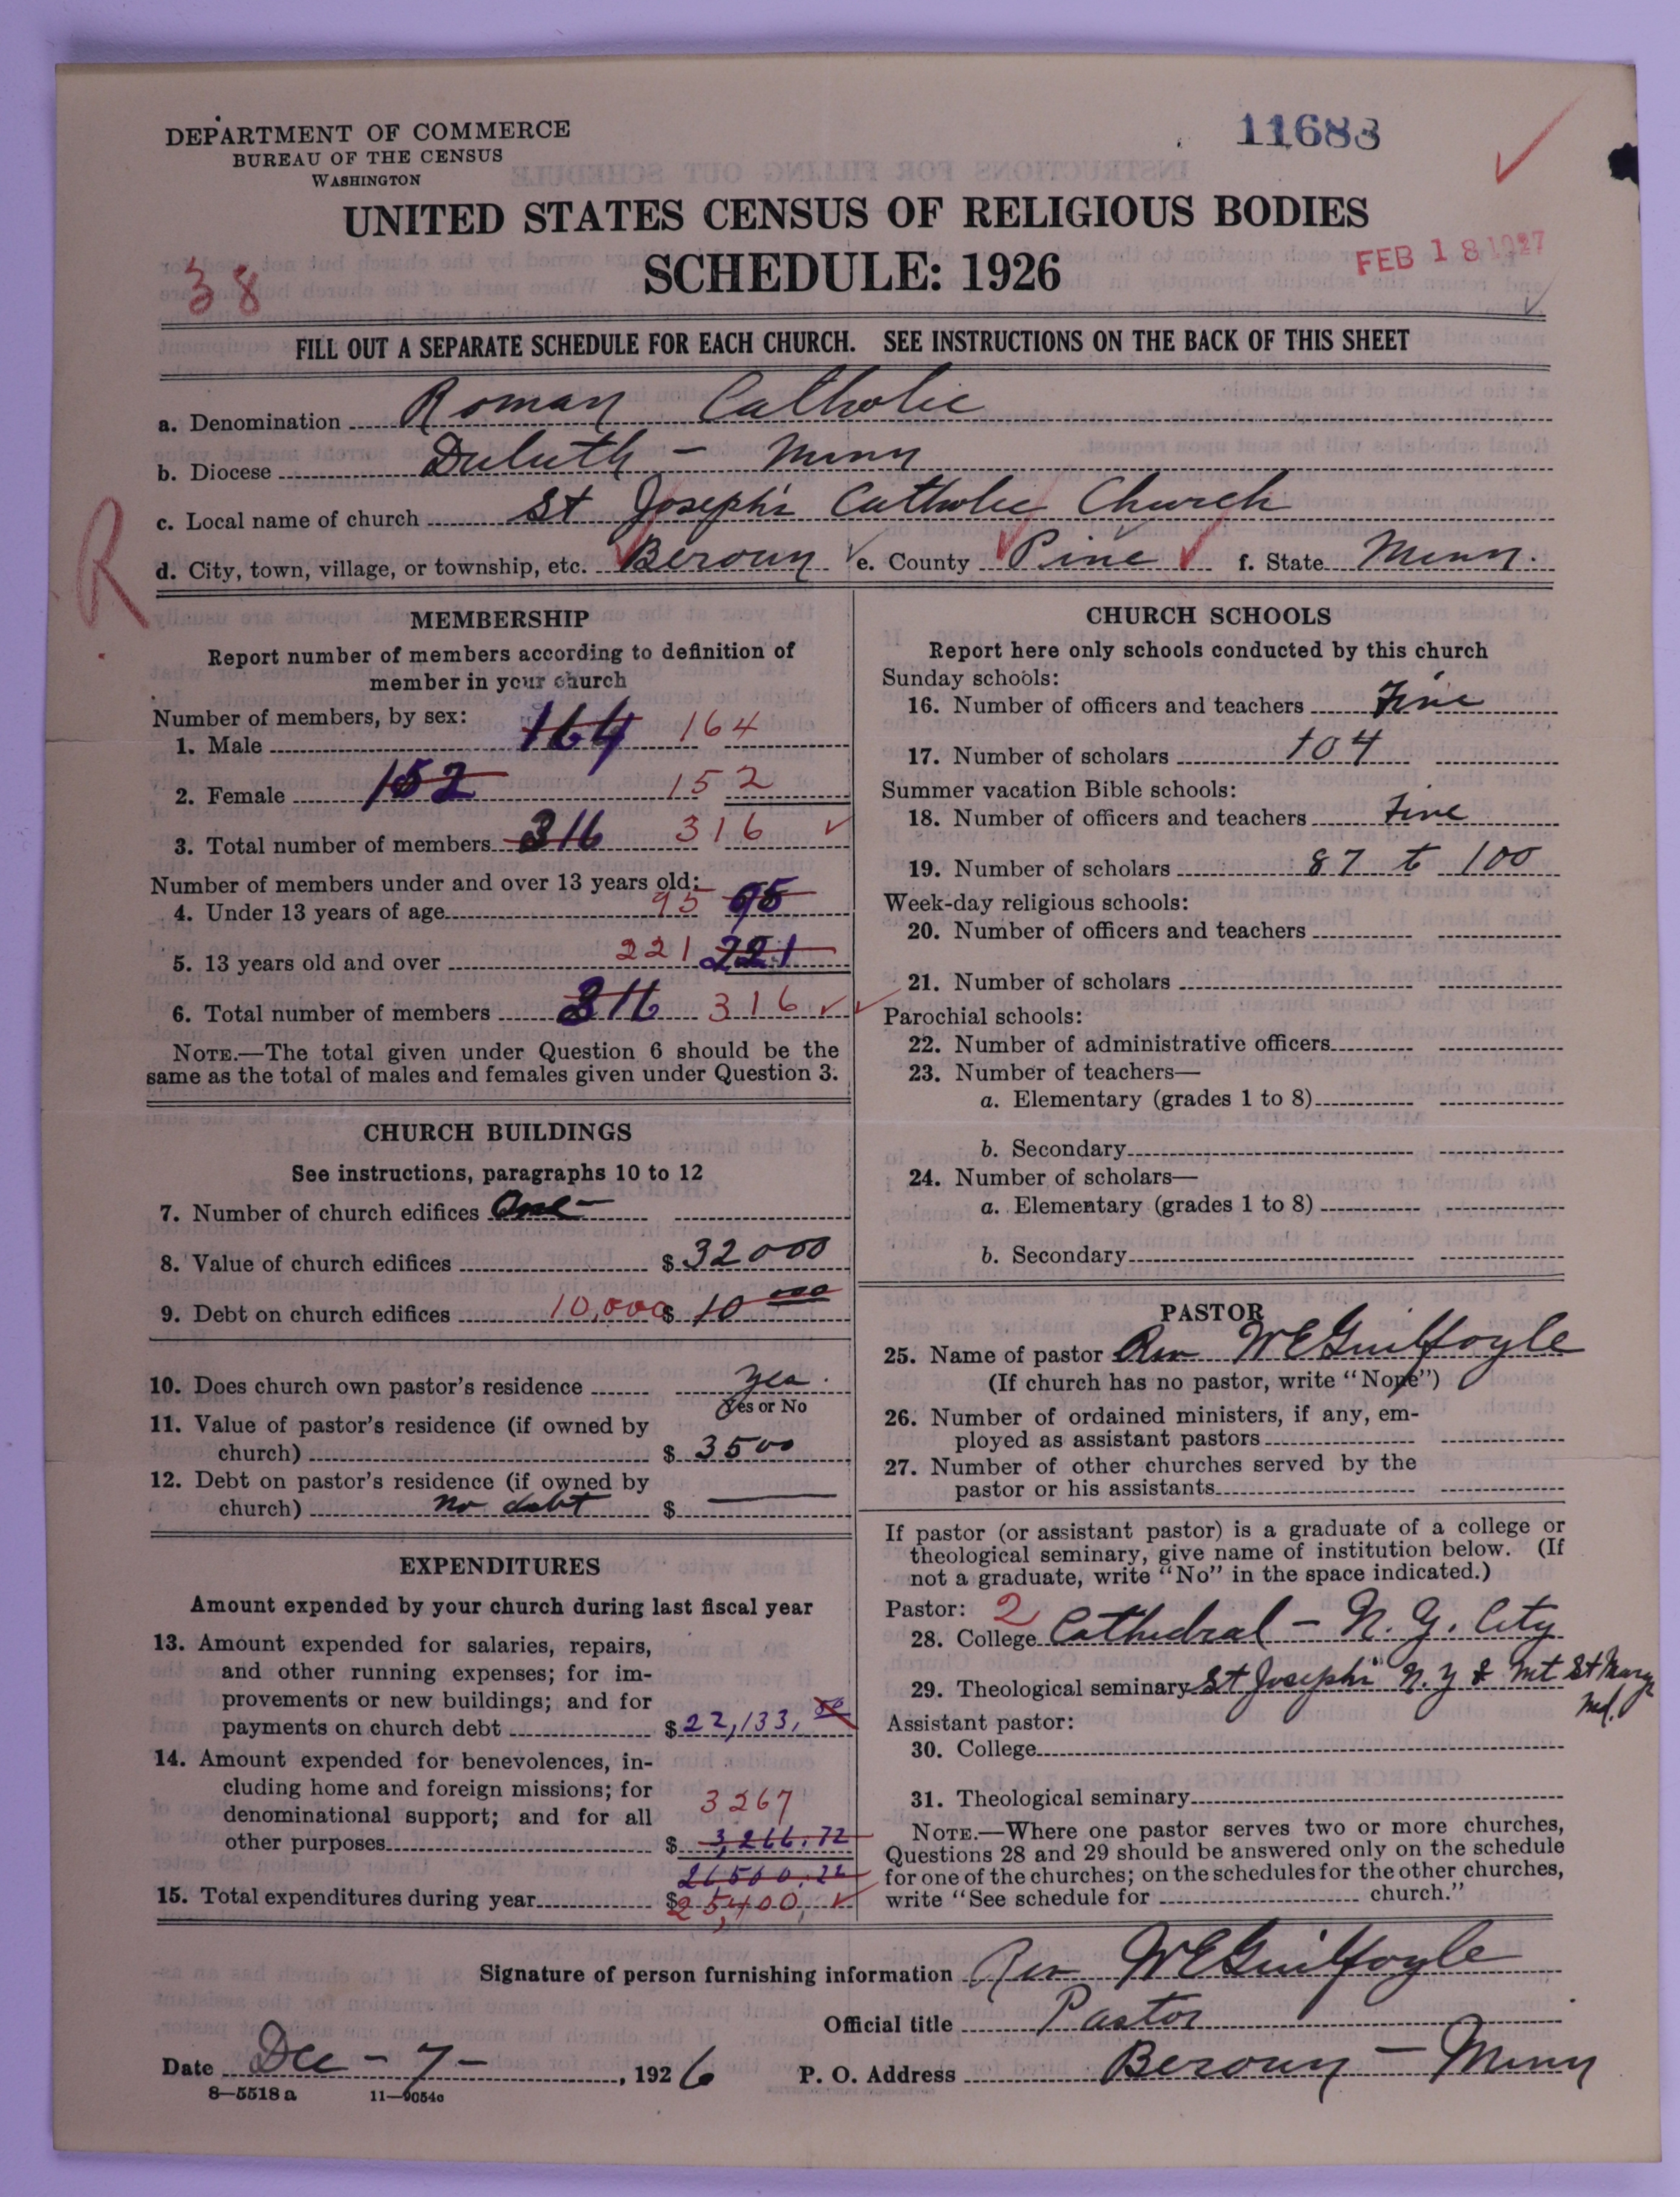 DEPARTMENT OF COMMERCE
BUREAU OF THE CENSUS
WASHINGTON
11688
UNITED STATES CENSUS OF RELIGIOUS BODIES
SCHEDULE: 1926
FEB 18 1927
38
FILL OUT A SEPARATE SCHEDULE FOR EACH CHURCH. SEE INSTRUCTIONS ON THE BACK OF THIS SHEET
a. Denomination Roman Catholic
b. Diocese Duluth - Minn
c. Local name of church St Joseph's Catholic Church
R
d. City, town, village, or township, etc. Beroun e. County Pine f. State Minn.
MEMBERSHIP
Report number of members according to definition of
member in your church
Number of members, by sex:
1. Male 164 164
2. Female 152 152
3. Total number of members 316 316
Number of members under and over 13 years old:
4. Under 13 years of age 95 95
5. 13 years old and over 221 221
6. Total number of members 316 316
NOTE.—The total given under Question 6 should be the
same as the total of males and females given under Question 3.
CHURCH BUILDINGS
See instructions, paragraphs 10 to 12
7. Number of church edifices One
8. Value of church edifices $ 32000
9. Debt on church edifices 10,000 $ 10 000
10. Does church own pastor's residence yes.
Yes or No
11. Value of pastor's residence (if owned by
church) $ 3500
12. Debt on pastor's residence (if owned by
church) no debt $ —
EXPENDITURES
Amount expended by your church during last fiscal year
13. Amount expended for salaries, repairs,
and other running expenses; for im-
provements or new buildings; and for
payments on church debt $ 22,133,
14. Amount expended for benevolences, in-
cluding home and foreign missions; for
denominational support; and for all 3267
other purposes $ 3,266.72
15. Total expenditures during year $ 25,400,
CHURCH SCHOOLS
Report here only schools conducted by this church
Sunday schools:
16. Number of officers and teachers Five
17. Number of scholars 104
Summer vacation Bible schools:
18. Number of officers and teachers Five
19. Number of scholars 87 to 100
Week-day religious schools:
20. Number of officers and teachers
21. Number of scholars
Parochial schools:
22. Number of administrative officers
23. Number of teachers—
a. Elementary (grades 1 to 8)
b. Secondary
24. Number of scholars—
a. Elementary (grades 1 to 8)
b. Secondary
PASTOR
25. Name of pastor Rev W E Guilfoyle
(If church has no pastor, write "None")
26. Number of ordained ministers, if any, em-
ployed as assistant pastors
27. Number of other churches served by the
pastor or his assistants
If pastor (or assistant pastor) is a graduate of a college or
theological seminary, give name of institution below. (If
not a graduate, write "No" in the space indicated.)
Pastor: 2
28. College Cathedral - N. Y. City
29. Theological seminary St Joseph's N. Y & Mt St Mary
Md.
Assistant pastor:
30. College
31. Theological seminary
NOTE.—Where one pastor serves two or more churches,
Questions 28 and 29 should be answered only on the schedule
for one of the churches; on the schedules for the other churches,
write "See schedule for church."
Signature of person furnishing information Rev W E Guilfoyle
Official title Pastor
Date Dec - 7 -, 1926 P. O. Address Beroun - Minn
8—5518 a 11—9054c